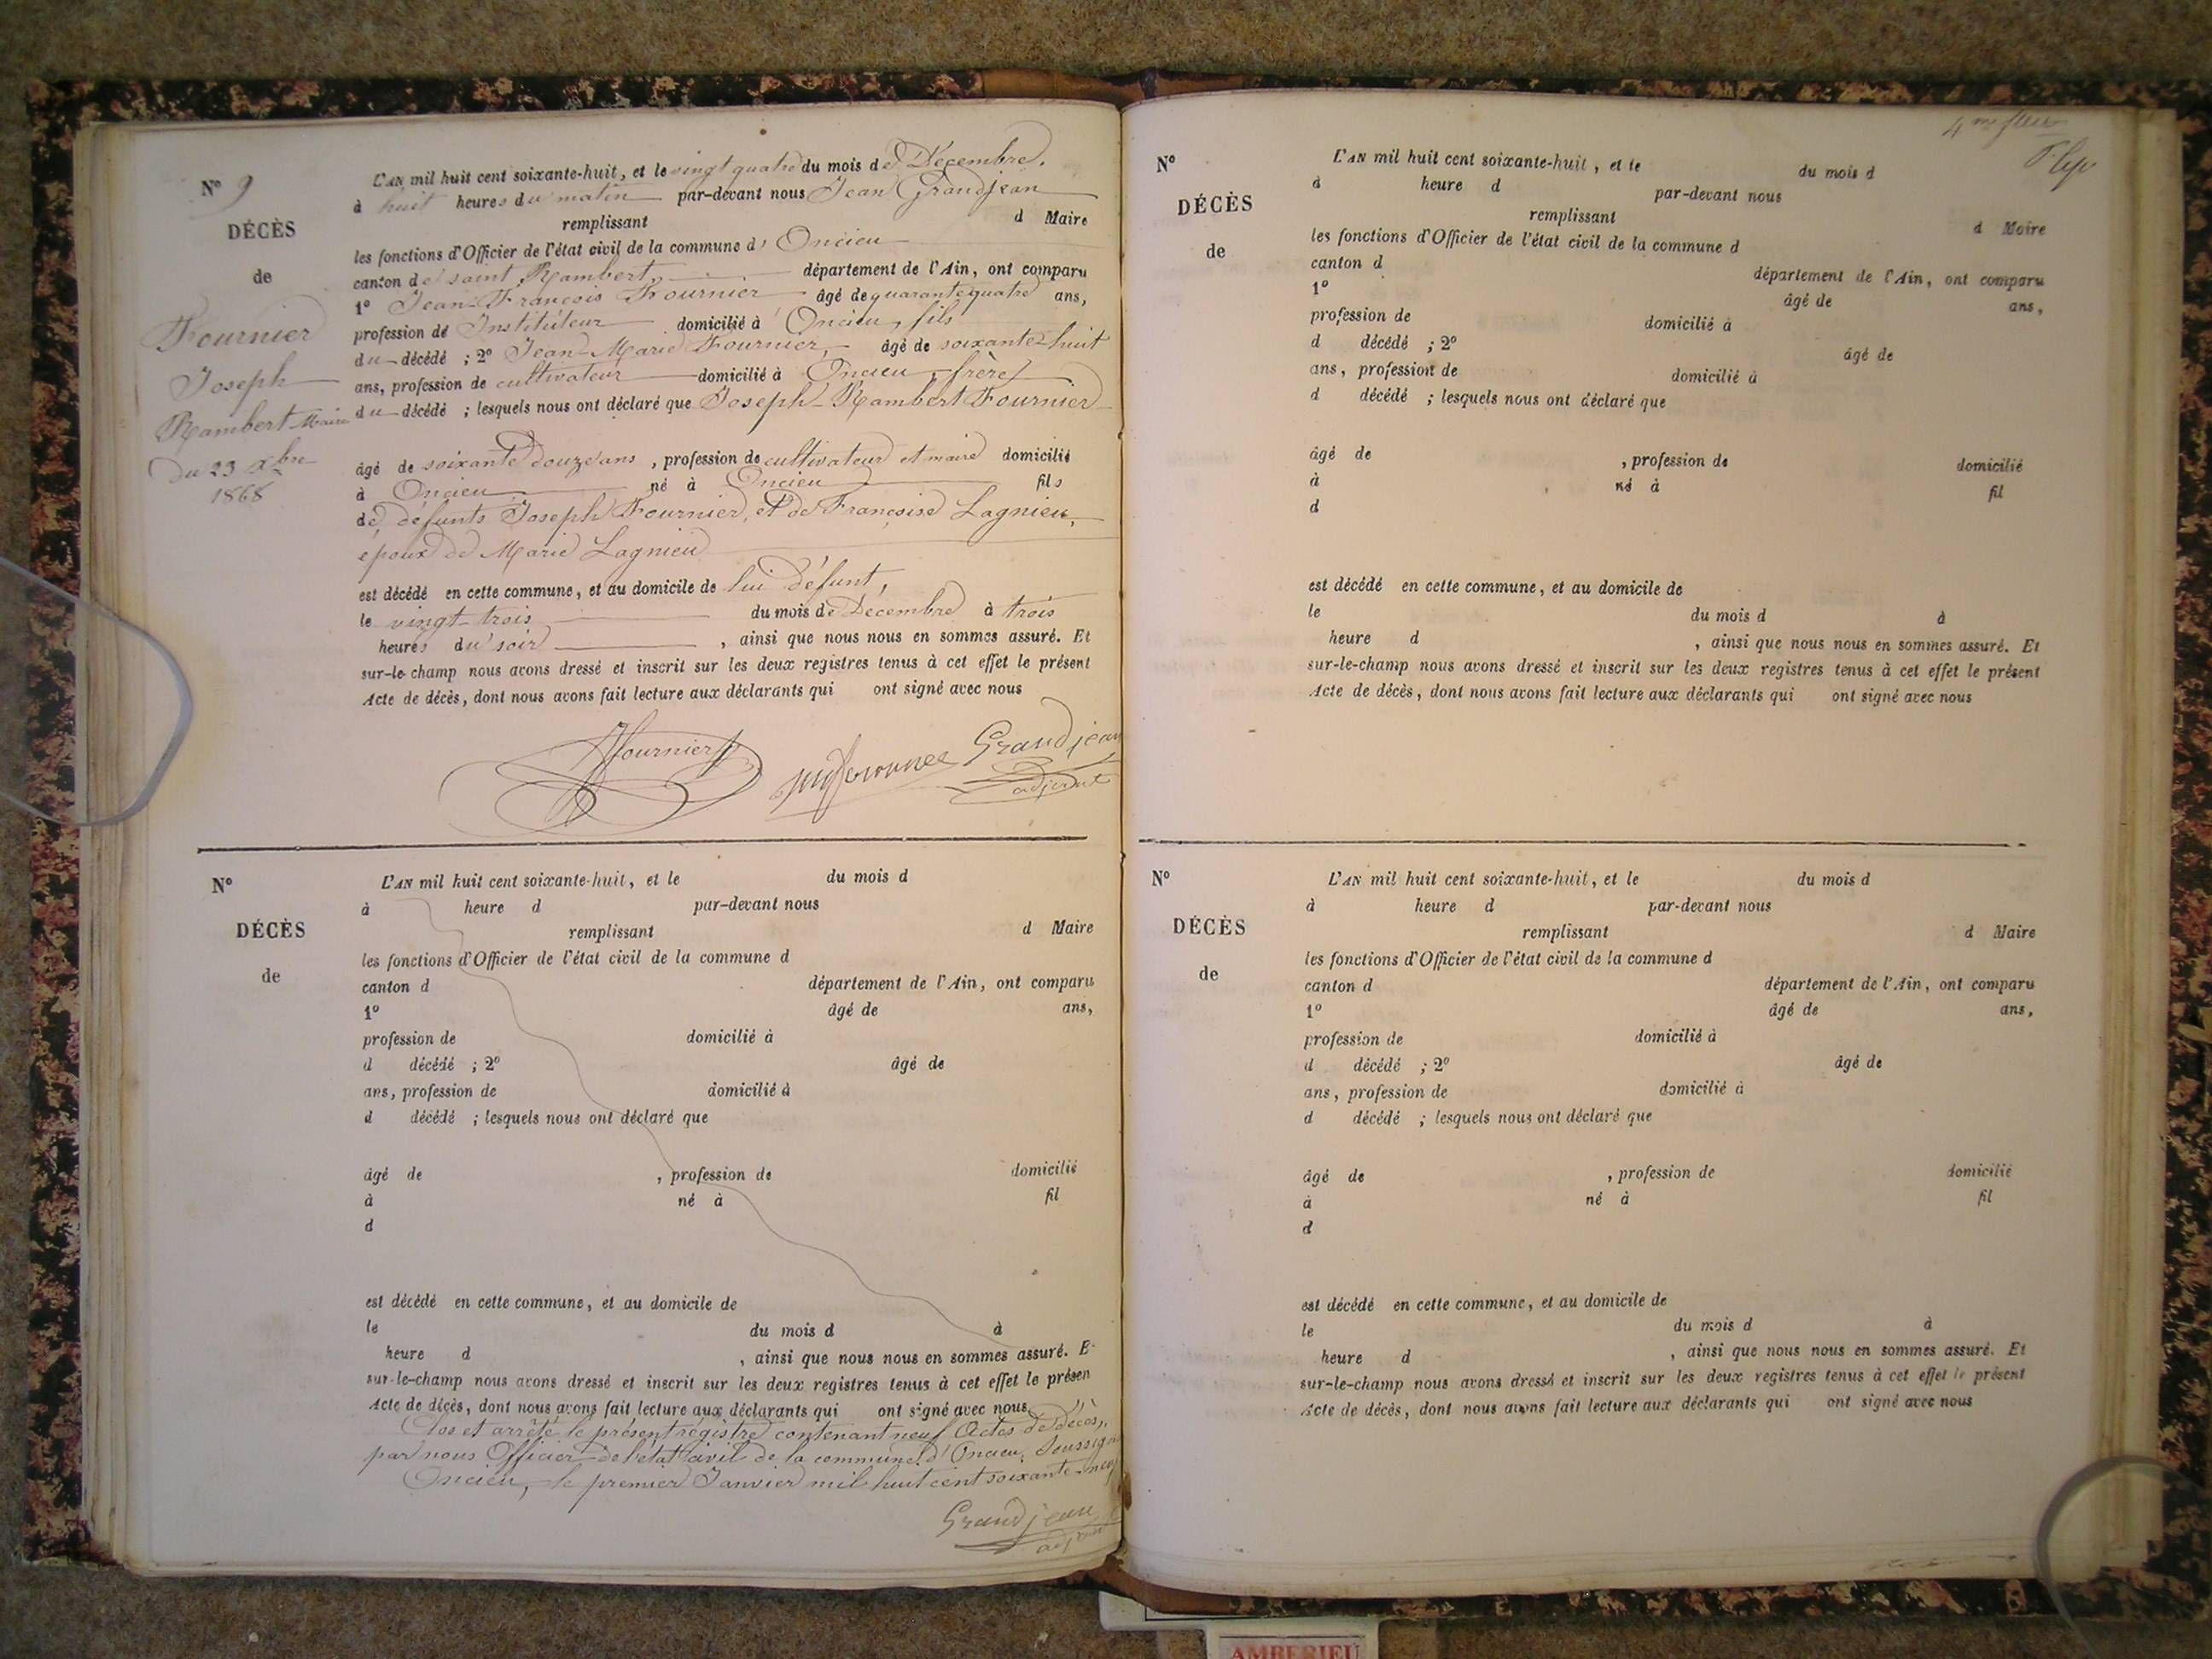 N° 9
DÉCÈS
de
Fournier
Joseph
Rambert Maire
du 23 Xbre
1868
L'AN mil huit cent soixante-huit, et le vingt quatre du mois de Décembre.
à huit heures du matin par-devant nous Jean Grandjean
remplissant d Maire
les fonctions d'Officier de l'état civil de la commune d' Oncieu
canton de saint Rambert, département de l'Ain, ont comparu
1° Jean-François Fournier âgé de quarante quatre ans,
profession de Instituteur domicilié à Oncieu, fils
du décédé ; 2° Jean-Marie Fournier, âgé de soixante-huit
ans, profession de cultivateur domicilié à Oncieu, frère
du décédé ; lesquels nous ont déclaré que Joseph-Rambert Fournier
âgé de soixante douze ans , profession de cultivateur et maire domicilié
à Oncieu né à Oncieu fils
de défunts Joseph Fournier, et de Françoise Lagnieu,
époux de Marie Lagnieu
est décédé en cette commune, et au domicile de lui défunt,
le vingt-trois du mois de Décembre à trois
heures du soir , ainsi que nous nous en sommes assuré. Et
sur-le-champ nous avons dressé et inscrit sur les deux registres tenus à cet effet le présent
Acte de décès, dont nous avons fait lecture aux déclarants qui ont signé avec nous
Fournier Grandjean
adjoint
N°
DÉCÈS
de
L'AN mil huit cent soixante-huit, et le du mois d
à heure d par-devant nous
remplissant d Maire
les fonctions d'Officier de l'état civil de la commune d
canton d département de l'Ain, ont comparu
1° âgé de ans,
profession de domicilié à
d décédé ; 2° âgé de
ans, profession de domicilié à
d décédé ; lesquels nous ont déclaré que
âgé de , profession de domicilié
à né à fil
d
est décédé en cette commune, et au domicile de
le du mois d à
heure d , ainsi que nous nous en sommes assuré. E
sur-le-champ nous avons dressé et inscrit sur les deux registres tenus à cet effet le présen
Acte de décès, dont nous avons fait lecture aux déclarants qui ont signé avec nous
Clos et arrêté le présent régistre contenant neuf Actes de Décès,
par nous Officier de l'état civil de la commune d'Oncieu, Soussigné
Oncieu, le premier Janvier mil huit cent soixante-neuf
Grandjean
adjoint
4me
N°
DÉCÈS
de
L'AN mil huit cent soixante-huit, et le du mois d
à heure d par-devant nous
remplissant d Maire
les fonctions d'Officier de l'état civil de la commune d
canton d département de l'Ain, ont comparu
1° âgé de ans,
profession de domicilié à
d décédé ; 2° âgé de
ans, profession de domicilié à
d décédé ; lesquels nous ont déclaré que
âgé de , profession de domicilié
à né à fil
d
est décédé en cette commune, et au domicile de
le du mois d à
heure d , ainsi que nous nous en sommes assuré. Et
sur-le-champ nous avons dressé et inscrit sur les deux registres tenus à cet effet le présent
Acte de décès, dont nous avons fait lecture aux déclarants qui ont signé avec nous
N°
DÉCÈS
de
L'AN mil huit cent soixante-huit, et le du mois d
à heure d par-devant nous
remplissant d Maire
les fonctions d'Officier de l'état civil de la commune d
canton d département de l'Ain, ont comparu
1° âgé de ans,
profession de domicilié à
d décédé ; 2° âgé de
ans, profession de domicilié à
d décédé ; lesquels nous ont déclaré que
âgé de , profession de domicilié
à né à fil
d
est décédé en cette commune, et au domicile de
le du mois d à
heure d , ainsi que nous nous en sommes assuré. Et
sur-le-champ nous avons dressé et inscrit sur les deux registres tenus à cet effet le présent
Acte de décès, dont nous avons fait lecture aux déclarants qui ont signé avec nous
AMBERIEU